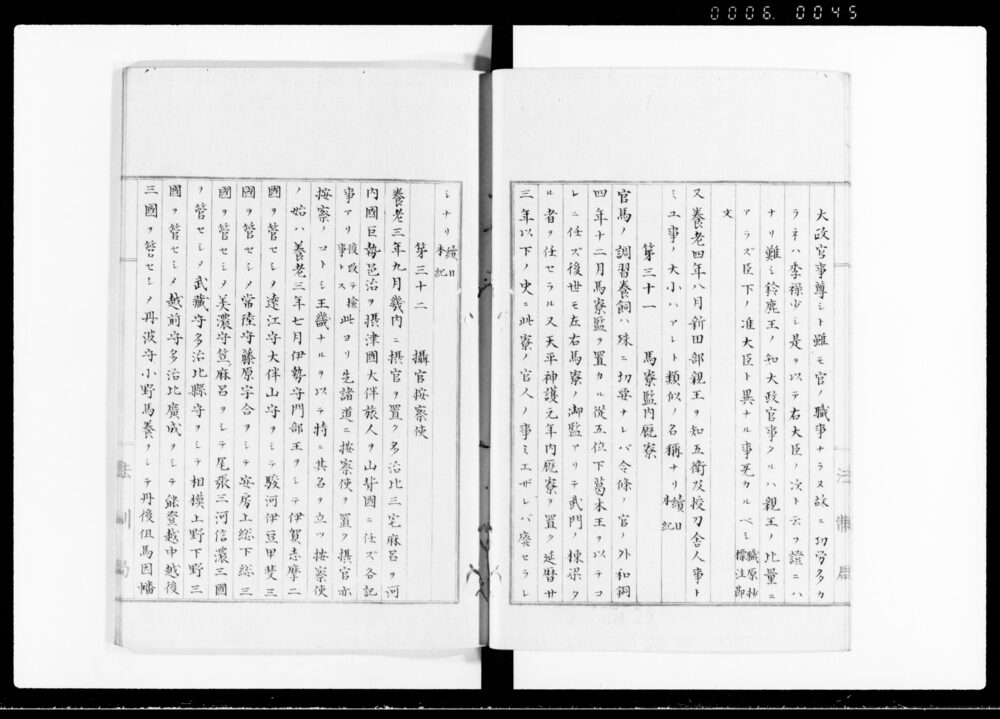 0006. 0045
大政官事尊シト雖モ官ノ職事ナラヌ故ニ功労多カ
ラネハ季禄少シ是ヲ以テ右大臣ノ次ト云フ證ニハ
ナリ難シ鈴鹿王ノ知大政官事タルハ親王ノ比量ニ
アラズ臣下ノ准大臣ト異ナル事死カルベシ職原抄標注節
文
又養老四年八月新田部親王ヲ知五衛及授刀舎人事ト
ミユ事ノ大小ハアレト類似ノ名稱ナリ續日本紀
第三十一 馬寮監内廐寮
官馬ノ調習養飼ハ殊ニ切要ナレバ令條ノ官ノ外和銅
四年十二月馬寮監ヲ置カル從五位下葛木王ヲ以テコ
レニ任ズ後世モ左右馬寮ノ御監アリテ武門ノ棟梁タ
ル者ヲ任セラル又天平神護元年内廐寮ヲ置ク延暦廿
三年以下ノ史ニ此寮ノ官人ノ事ミエザレバ廃セラレ
シナリ續日本紀
第三十二 攝官按察使
養老三年九月畿内ニ摂官ヲ置ク多治比三宅麻呂ヲ河
内國巨勢邑治ヲ摂津國大伴旅人ヲ山背國ニ任ズ各記
事アリ後改テ検事トス此ヨリ先諸道ニ按察使ヲ置ク摂官亦
按察ノコトシ王畿ナルヲ以テ特ニ其名ヲ立ツ按察使
ノ始ハ養老三年七月伊勢守門部王ヲシテ伊賀志摩二
國ヲ管セシメ遠江守大伴山守ヲシテ駿河伊豆甲斐三
國ヲ管セシメ常陸守藤原宇合ヲシテ安房上総下総三
國ヲ管セシメ美濃守笠麻呂ヲシテ尾張三河信濃三國
ヲ管セシメ武藏守多治比縣守ヲシテ相模上野下野三
國ヲ管セシメ越前守多治比廣成ヲシテ能登越中越後
三國ヲ管セシメ丹波守小野馬養ヲシテ丹後但馬因幡
法制局